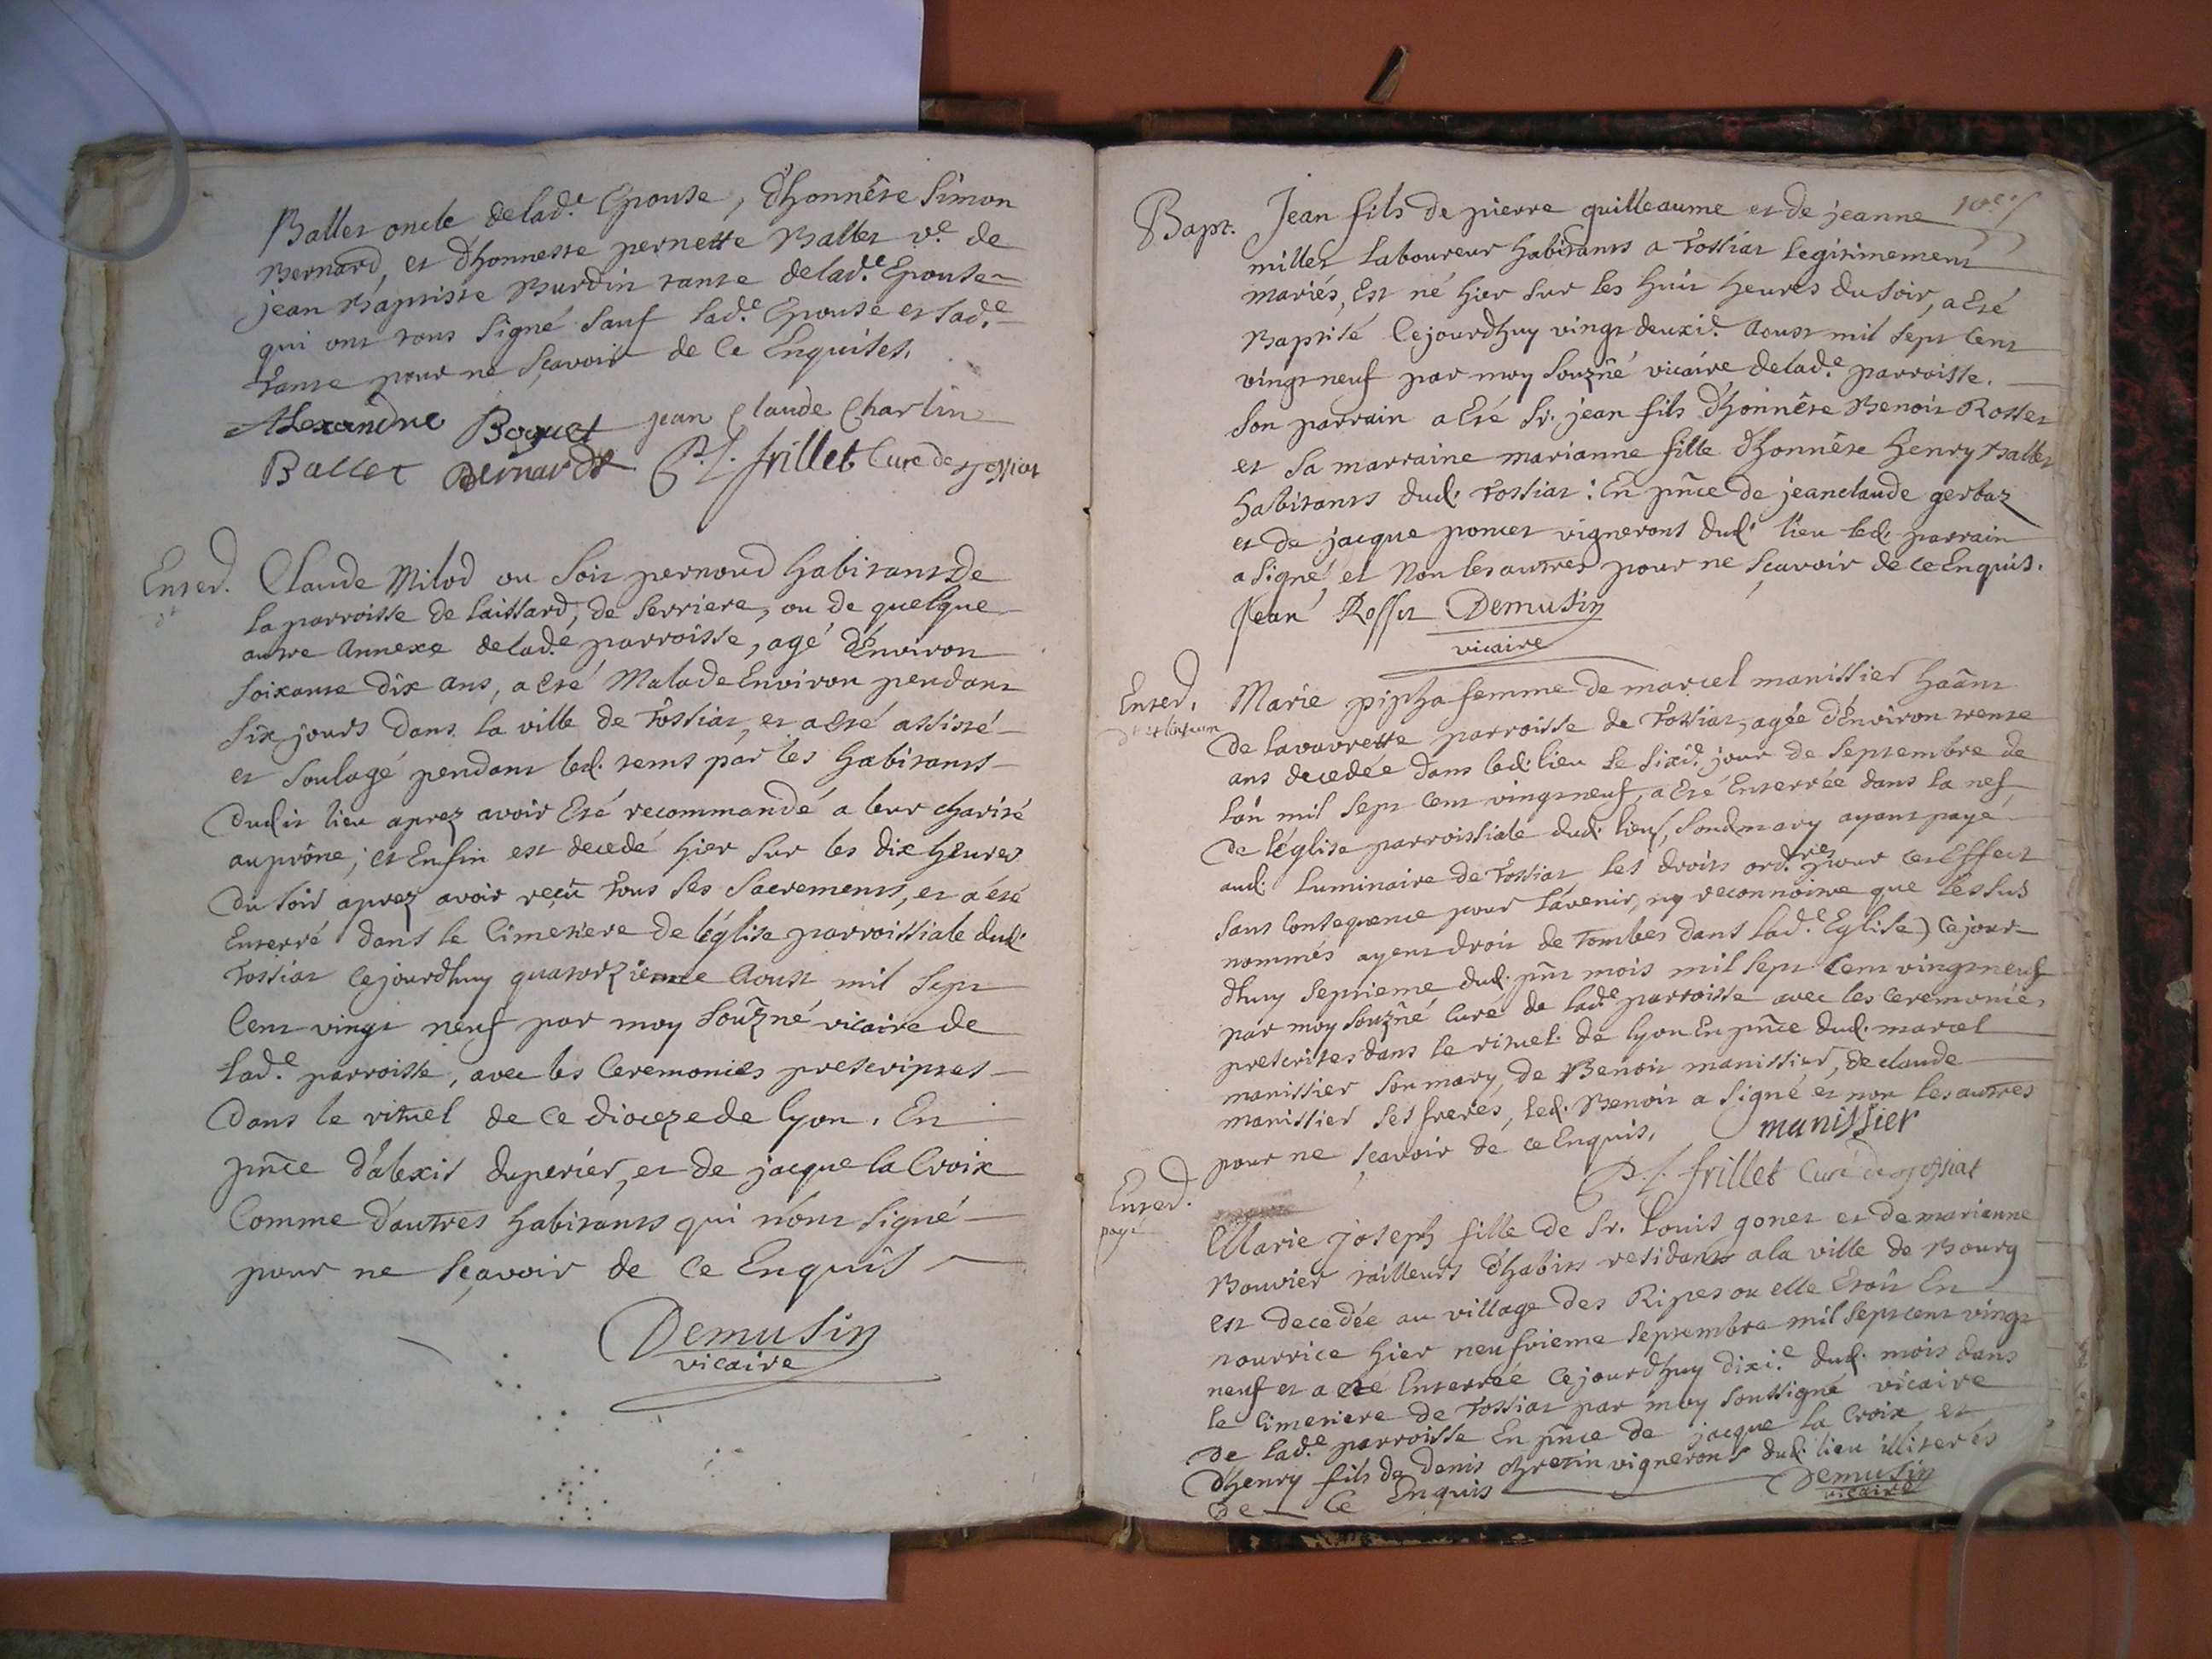 Ballet oncle de lad.e Epouse, d'honnête Simon
Bernard, et d'honneste pernette Ballet v.e de
jean Baptiste Burdin tante de lad.e Epouse
qui ont tous signé sauf lad.e Epouse et lad.e
tante pour ne sçavoir de ce Enquises.
Alexandre Boguet jean Claude Charlin
Ballet Bernardt P. J. frillet Curé de tossiat
Enter. Claude Milod ou soit pernoud habitant de
la parroisse de laissard, de serriere, ou de quelque
autre Annexe de lad.e parroisse, agé d'Environ
soixante dix ans, a eté Malade Environ pendant
six jours dans la ville de Tossiat, et a eté assisté
et soulagé pendant led. tems par les habitants
dudit lieu aprez avoir eté recommandé a leur charité
au prône; et Enfin est decedé hier sur les dix heures
du soir aprez avoir reçû tous ses sacrements, et a été
Enterré dans le Cimetiere de l'église parroissiale dud.
Tossiat Cejourdhuy quatorzieme Aoust mil sept
Cent vingt neuf par moy souzné vicaire de
lad.e parroisse, avec les Ceremonies prescriptes
dans le rituel de ce dioceze de lyon. En
pñce d'alexis duperier, et de jacque la Croix
Comme d'autres habitants qui n'ont signé
pour ne sçavoir de ce Enquis
Demusin
vicaire
Bapt. Jean fils de pierre guilleaume et de jeanne
millet laboureur habitants a Tossiat legitimement
mariés, Est né hier sur les huit heures du soir, a eté
Baptisé Cejourdhuy vingt deuxi.e Aoust mil sept Cent
vingt neuf par moy souzñé vicaire de lad.e parroisse.
Son parrain a eté Sr. jean fils d'honnête Benoit Rosset
et sa marraine marianne fille d'honnête henry Ballet
habitants dud. Tossiat: En pñce de jeanclaude gerbaz
et de jacque poncet vignerons dud. lieu led. parrain
a signé, et Non les autres pour ne sçavoir de ce Enquis.
Jean Rosset Demusin
vicaire
Enter. Marie pipha femme de marcel manissier haãnt
de lavavrette parroisse de Tossiat, agée d'Environ trente
ans decedée dans led. lieu le sixi.e jour de septembre de
l'an mil sept cent vingtneuf, a eté Enterrée dans la nef
de l'église parroissiale dud. lieu, sond. mary ayant payé
aud. luminaire de Tossiat les droits ord.ries pour cet Effect
sans consequence pour l'avenir, ny reconnoitre que les sus
nommés ayent droit de Tombes dans lad.e Eglise) Cejour
dhuy septieme dud. pñt mois mil sept Cent vingtneuf
par moy souzñé Curé de lad.e parroisse avec les ceremonies
prescrites dans le rituel de lyon En pñce dud. marcel
manissier son mary, de Benoit manissier, de claude
manissier ses freres, led. Benoit a signé et non les autres
pour ne sçavoir de ce Enquis. manissier
P. J. frillet Curé de tossiat
Enter.
payé
Marie joseph fille de Sr. Louis gonet et de marianne
Bouvier tailleurs d'habits residants a la ville de Bourg
est decedée au village des Ripes ou elle Etoit En
nourrice hier neufvieme septembre mil sept cent vingt
neuf et a eté Enterrée Cejourdhuy dixi.e dud. mois dans
le Cimetiere de Tossiat par moy soussigné vicaire
de lad.e parroisse En pñce de jacque la Croix, et
d'henry fils de denis chretin vignerons dud. lieu illiterés
de ce Enquis Demusin
vicaire